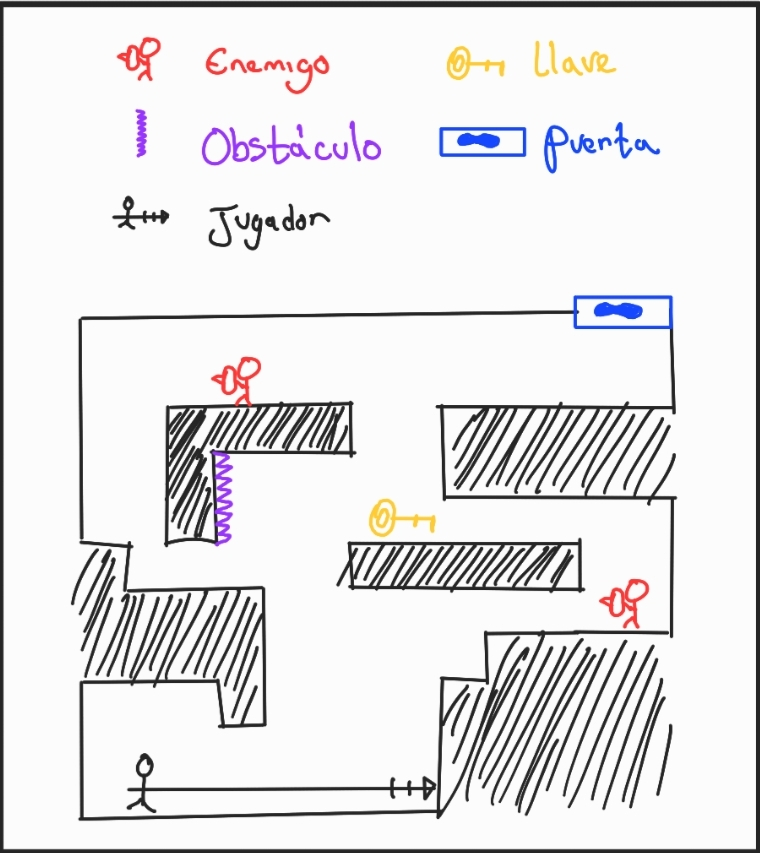 Enemigo
Llave
Obstáculo
Puerta
Jugador